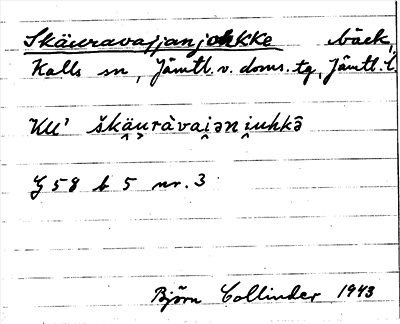 Skäuravajjanjohkke bäck,
Kalls sn, Jämtl. v. doms. tg, Jämtl. l.
KU' škäu̯ràvai̯ǝn i̯uhkǝ̄
G 58 b 5 nr. 3
Björn Collinder 1943